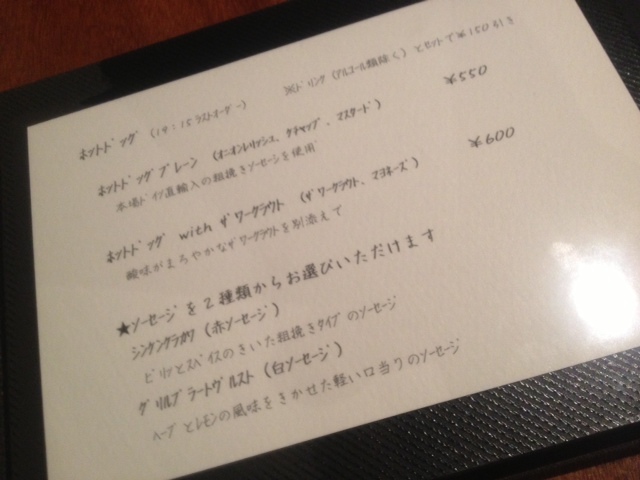 ホットドッグ (19:15ラストオーダー) ※ドリンク(アルコール類除く)とセットで¥150引き
ホットドッグプレーン (オニオンレリッシュ、ケチャップ、マスタード) ¥550
本場ドイツ直輸入の粗挽きソーセージを使用
ホットドッグ withザワークラウト (ザワークラウト、マヨネーズ) ¥600
酸味がまろやかなザワークラウトを別添えで
★ソーセージを2種類からお選びいただけます
シンケングラカワ (赤ソーセージ)
ピリッとスパイスのきいた粗挽きタイプのソーセージ
グリルブラートヴルスト (白ソーセージ)
ハーブとレモンの風味をきかせた軽い口当りのソーセージ